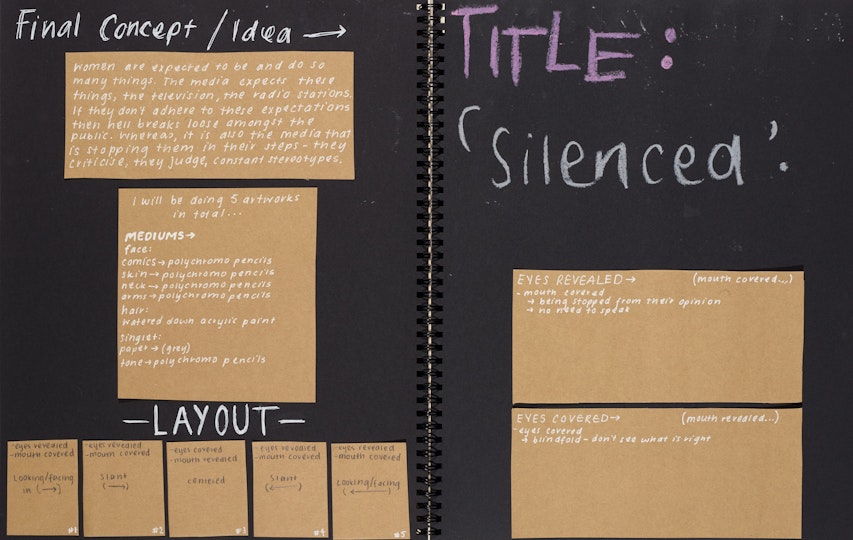 Final Concept / Idea →
Women are expected to be and do so
many things. The media expects these
things, the television, the radio stations.
If they don't adhere to these expectations
then hell breaks loose amongst the
public. Whereas, it is also the media that
is stopping them in their steps - they
criticise, they judge, constant stereotypes.
I will be doing 5 artworks
in total...
MEDIUMS→
face:
comics→polychromo pencils
skin→polychromo pencils
neck→polychromo pencils
arms→polychromo pencils
hair:
watered down acrylic paint
singlet:
paper→(grey)
tone→polychromo pencils
-LAYOUT-
-eyes revealed
-mouth covered
Looking/facing
in (→)
#1
-eyes revealed
-mouth covered
Slant
(→)
#2
-eyes covered
-mouth revealed
centered
#3
-eyes revealed
-mouth covered
Slant
(←)
#4
-eyes revealed
-mouth covered
Looking/facing
(←)
#5
TITLE:
'Silenced'.
EYES REVEALED→ (mouth covered...)
-mouth covered
→ being stopped from their opinion
→ no need to speak
EYES COVERED→ (mouth revealed...)
-eyes covered
→ blindfold - don't see what is right